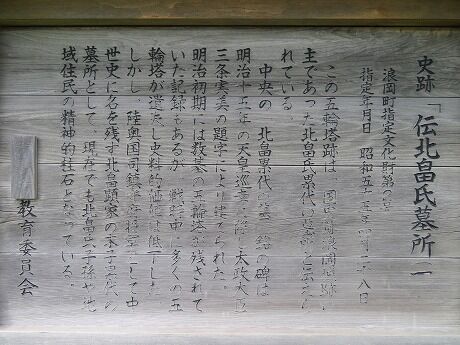 史跡「伝北畠氏墓所」
浪岡町指定文化財第
指定年月日 昭和五十 年四月二八日
この五輪塔跡は 国
主であった北畠氏累代の墓
れている
中央の 北畠累代の 碑は
明治十五年の天皇巡幸 太政大臣
三条実美の題字により建てられた。
明治初期には数基の五輪塔が残されて
いた記録もあるが 戦 中に多くの五
輪塔が遺失し史料的価値は低下した
しかし、陸奥国司鎮守 として中
世史に名を残す北畠顕家の 子
墓所として、現在でも北畠 子孫や 地
域住民の精神的柱石となっている。
教育委員会